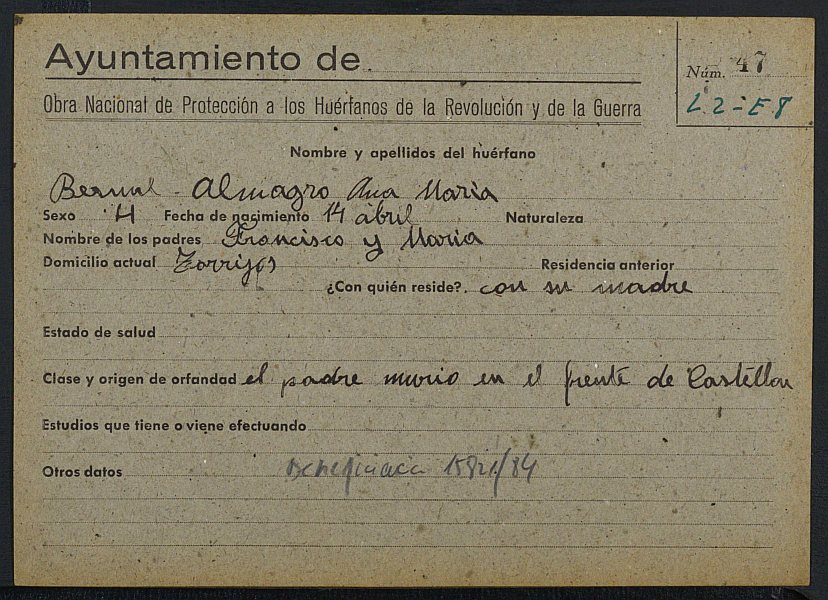 Ayuntamiento de
Núm. 47
L2-E8
Obra Nacional de Protección a los Huérfanos de la Revolución y de la Guerra
Nombre y apellidos del huérfano
Bernal Almagro Ana Maria
Sexo H Fecha de nacimiento 14 abril Naturaleza
Nombre de los padres Francisco y Maria
Domicilio actual Torrijos Residencia anterior
¿Con quién reside? con su madre
Estado de salud
Clase y origen de orfandad el padre murio en el frente de Castellon
Estudios que tiene o viene efectuando
Otros datos